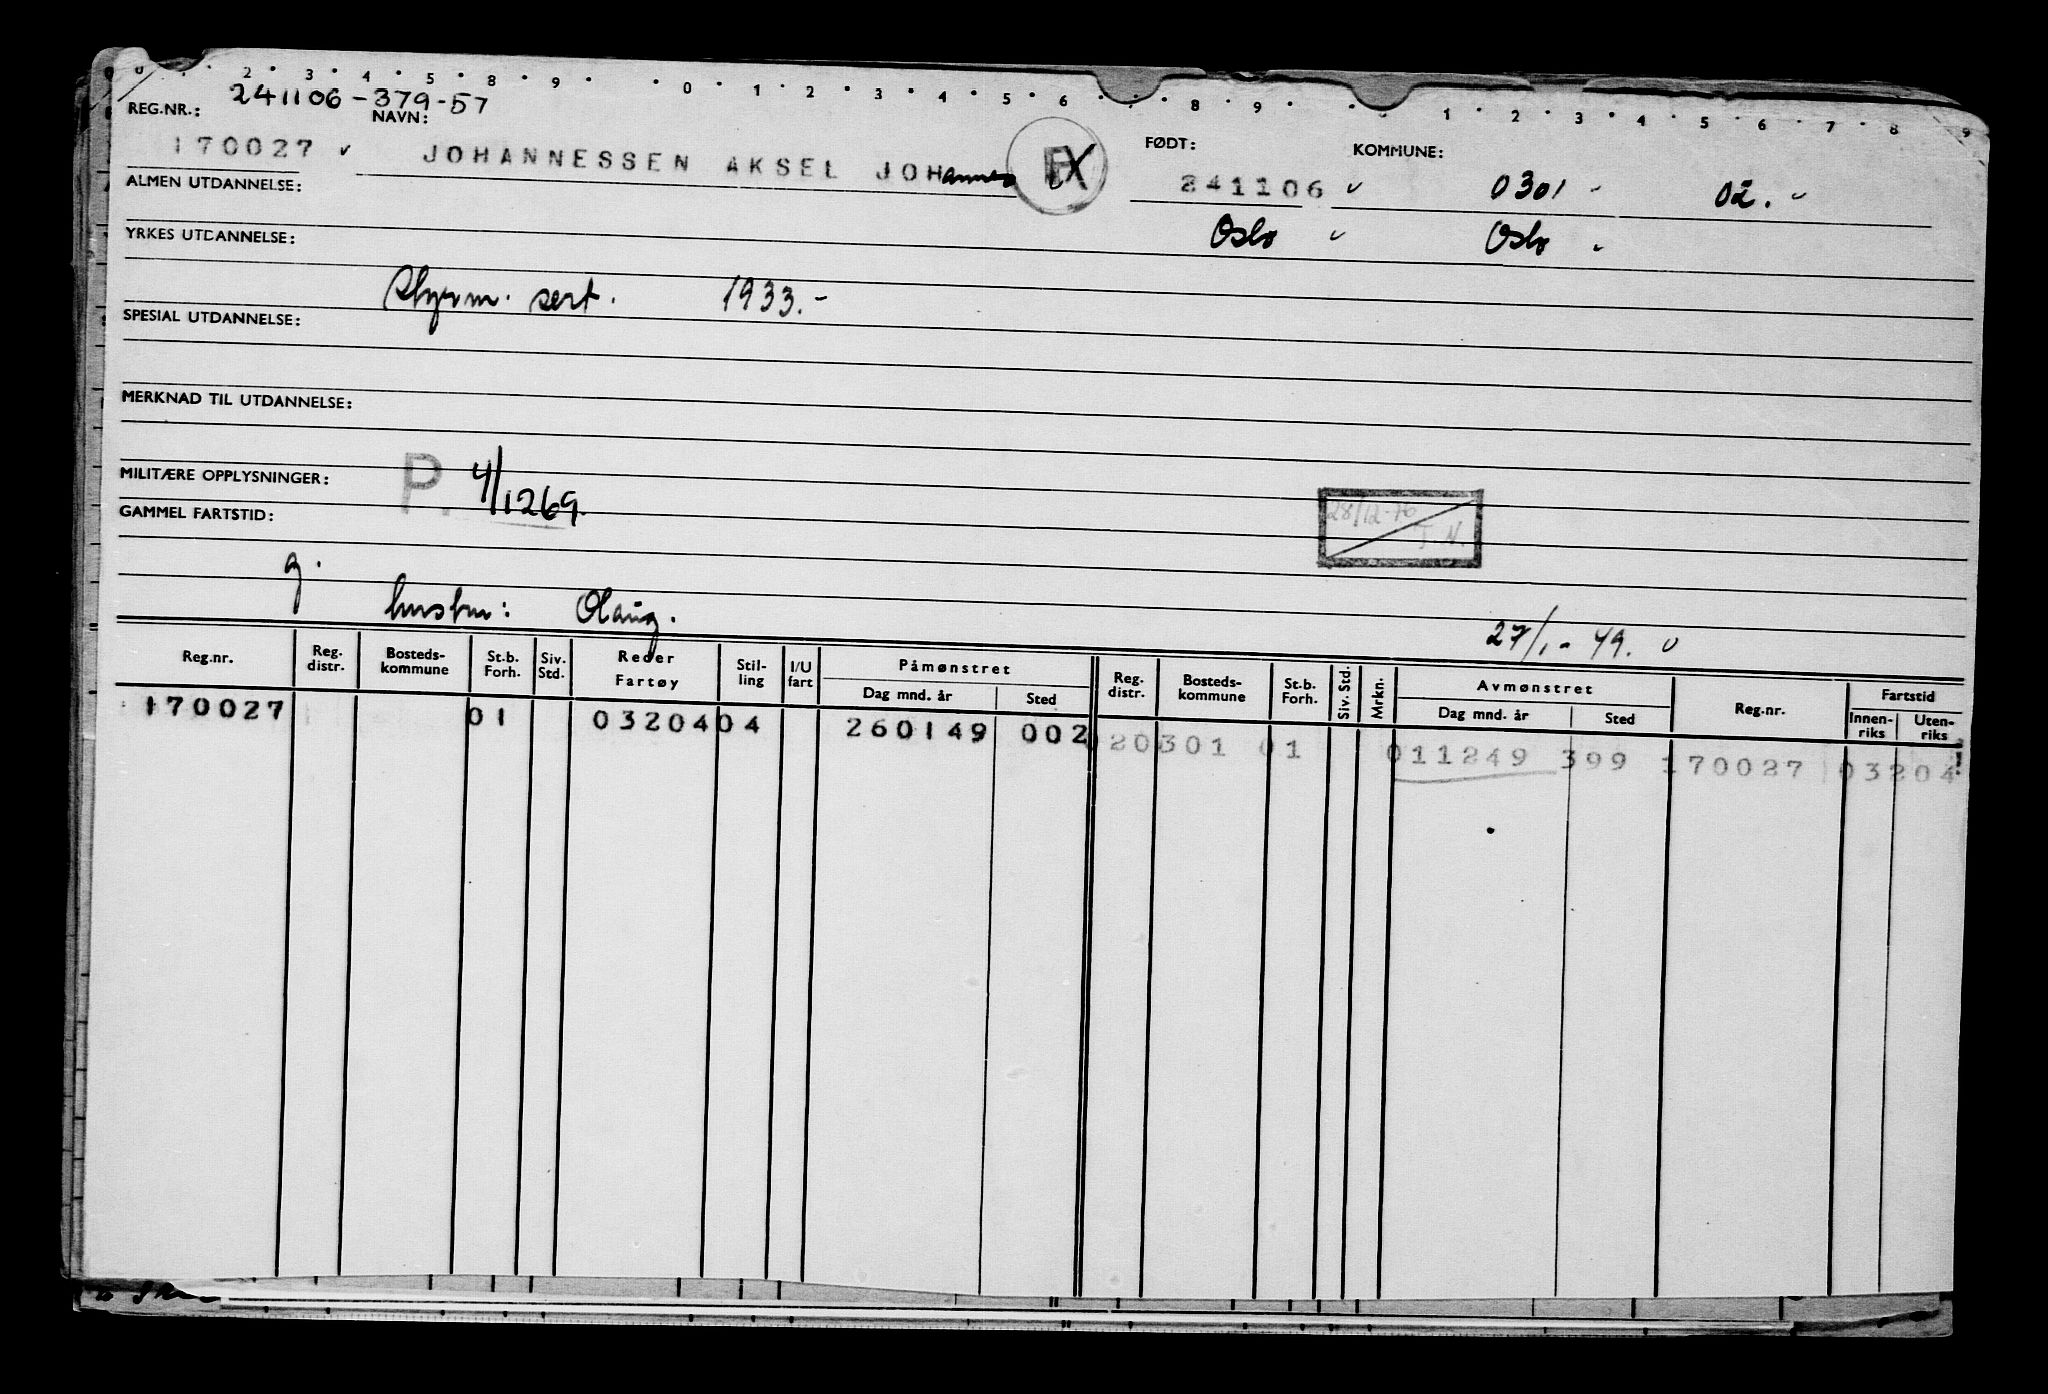 0 2 3 4 5 8 9 0 1 2 3 4 5 6 8 9 1 2 3 4 5 6 7 8 9
REG.NR.: 241106-379-57
NAVN: FØDT: KOMMUNE:
170027 JOHANNESSEN AKSEL JOHannes 241106 0301 02.
ALMEN UTDANNELSE:
Oslo Oslo
YRKES UTDANNELSE:
Styrm. sert. 1933.-
SPESIAL UTDANNELSE:
MERKNAD TIL UTDANNELSE:
MILITÆRE OPPLYSNINGER: P. 4/1269.
GAMMEL FARTSTID: 28/12-76 T.N.
g.
hustru: Olaug. 27/1-49.
Reg.nr. Reg. distr. Bosteds-kommune St.b. Forh. Siv. Std. Reder Fartøy Stil-ling I/U fart Påmønstret Dag mnd. år Sted Reg. distr. Bosteds-kommune St.b. Forh. Siv. Std. Mrkn. Avmønstret Dag mnd. år Sted Reg.nr. Fartstid Innen-riks Uten-riks
170027 01 03204 04 260149 002 20301 01 011249 399 170027 03204